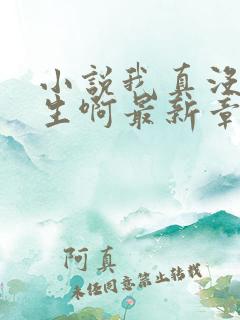 小說我真没
生啊最新章
阿真
未经同意禁止转载